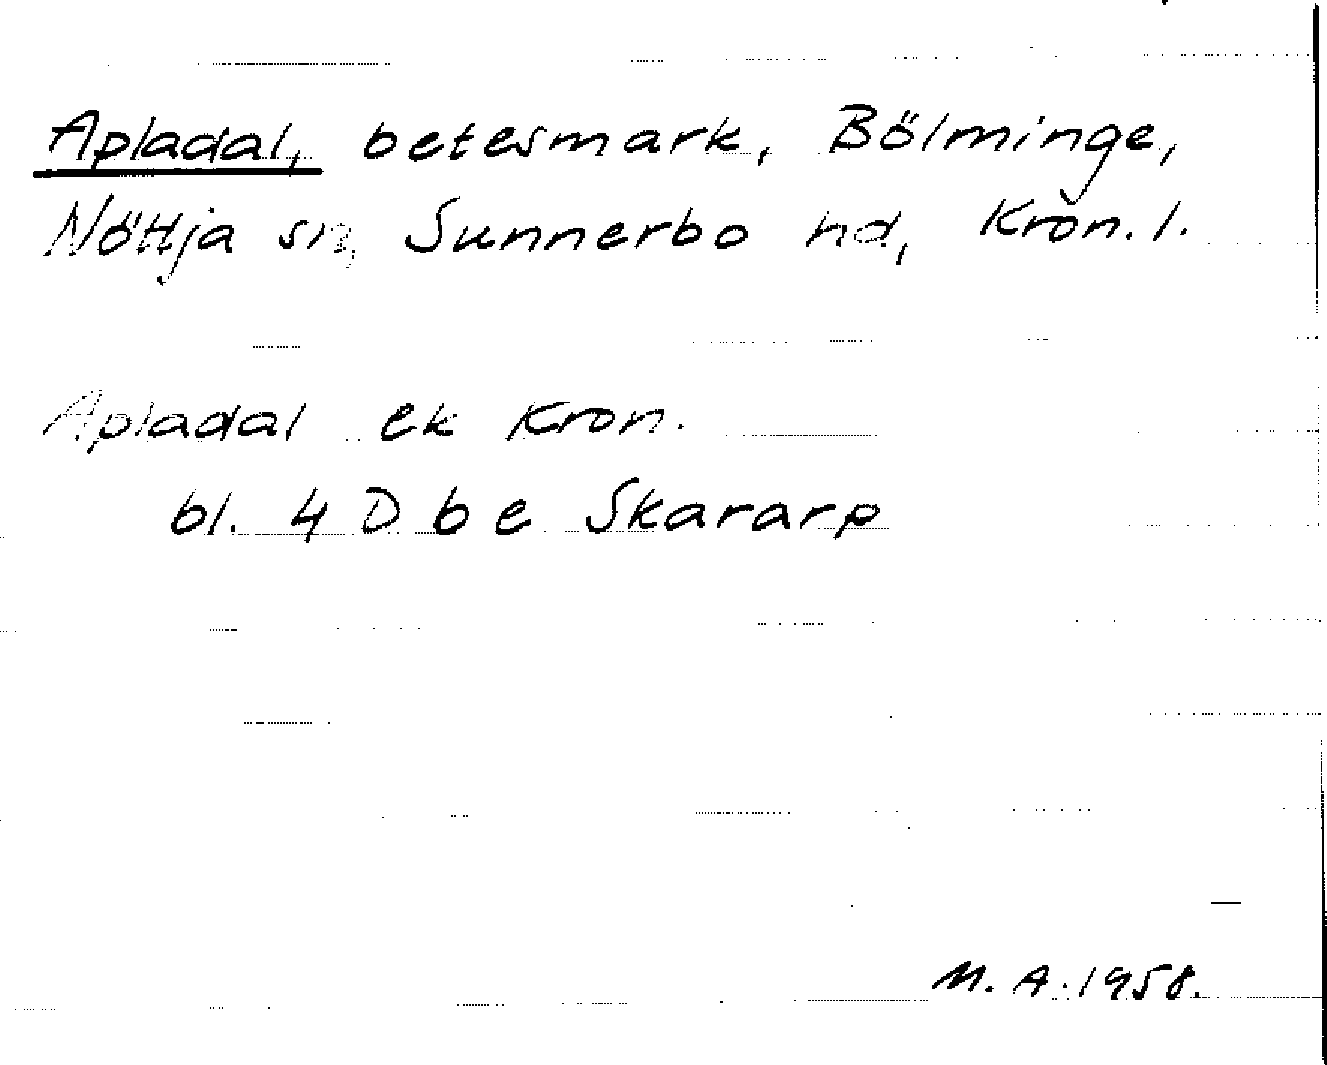 Apladal, betesmark, Bölminge,
Nöttja sn, Sunnerbo hd, Kron. l.
Apladal ek Kron.
bl. 4 D b e Skararp
M. A. 1958.